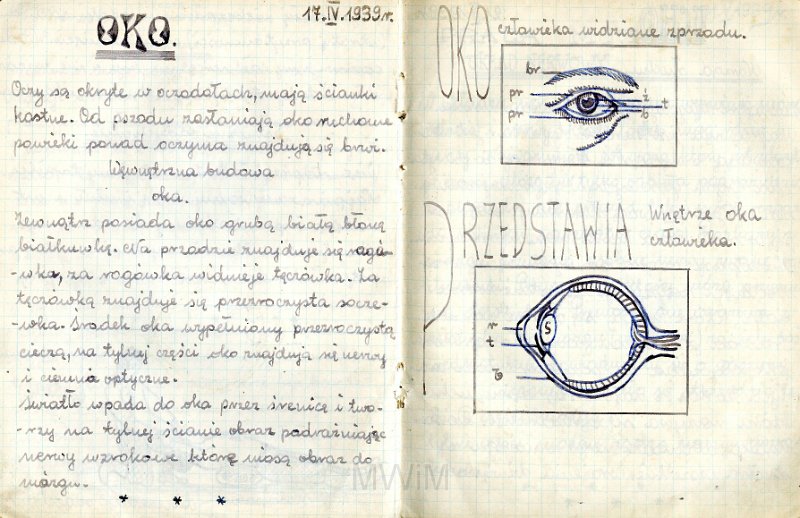 17.IV.1939r.
OKO.
Oczy są okryte w oczodołach, mają ścianki
kostne. Od przodu zasłaniają oko ruchome
powieki ponad oczyma znajdują się brwi.
Wewnętrzna budowa
oka.
Zewnątrz posiada oko grubą białą błonę
białkówkę. Na przodzie znajduje się rogó-
-wka, za rogówką widnieje tęczówka. Za
tęczówką znajduje się przezroczysta socze-
-wka. Środek oka wypełniony przezroczystą
cieczą, na tylnej części oko znajdują się nerwy
i ciemnia optyczne.
Światło wpada do oka przez źrenicę i two-
-rzy na tylnej ścianie obraz podrażniając
nerwy wzrokowe które niosą obraz do
mózgu.
* * *
OKO człowieka widziane zprzodu.
br
pr
pr
ź
t
b
PRZEDSTAWIA Wnętrze oka
człowieka.
r
t
S
b
MWiM